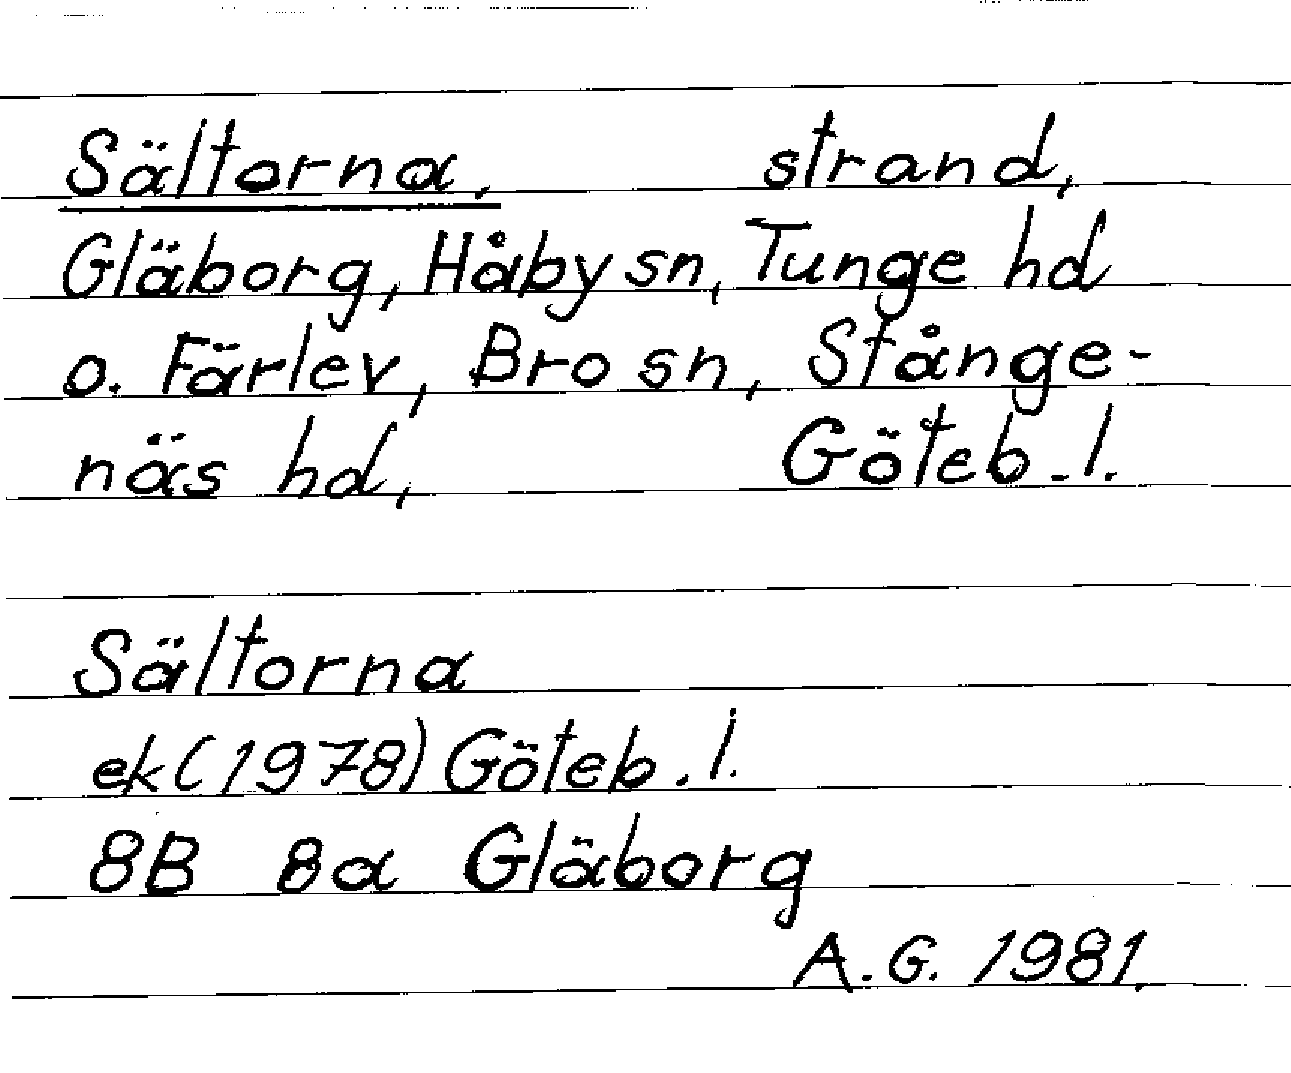 Sältorna, strand,
Gläborg, Håby sn, Tunge hd
o. Färlev, Bro sn, Stånge-
näs hd, Göteb. l.
Sältorna
ek (1978) Göteb. l.
8B 8a Gläborg
A.G. 1981.